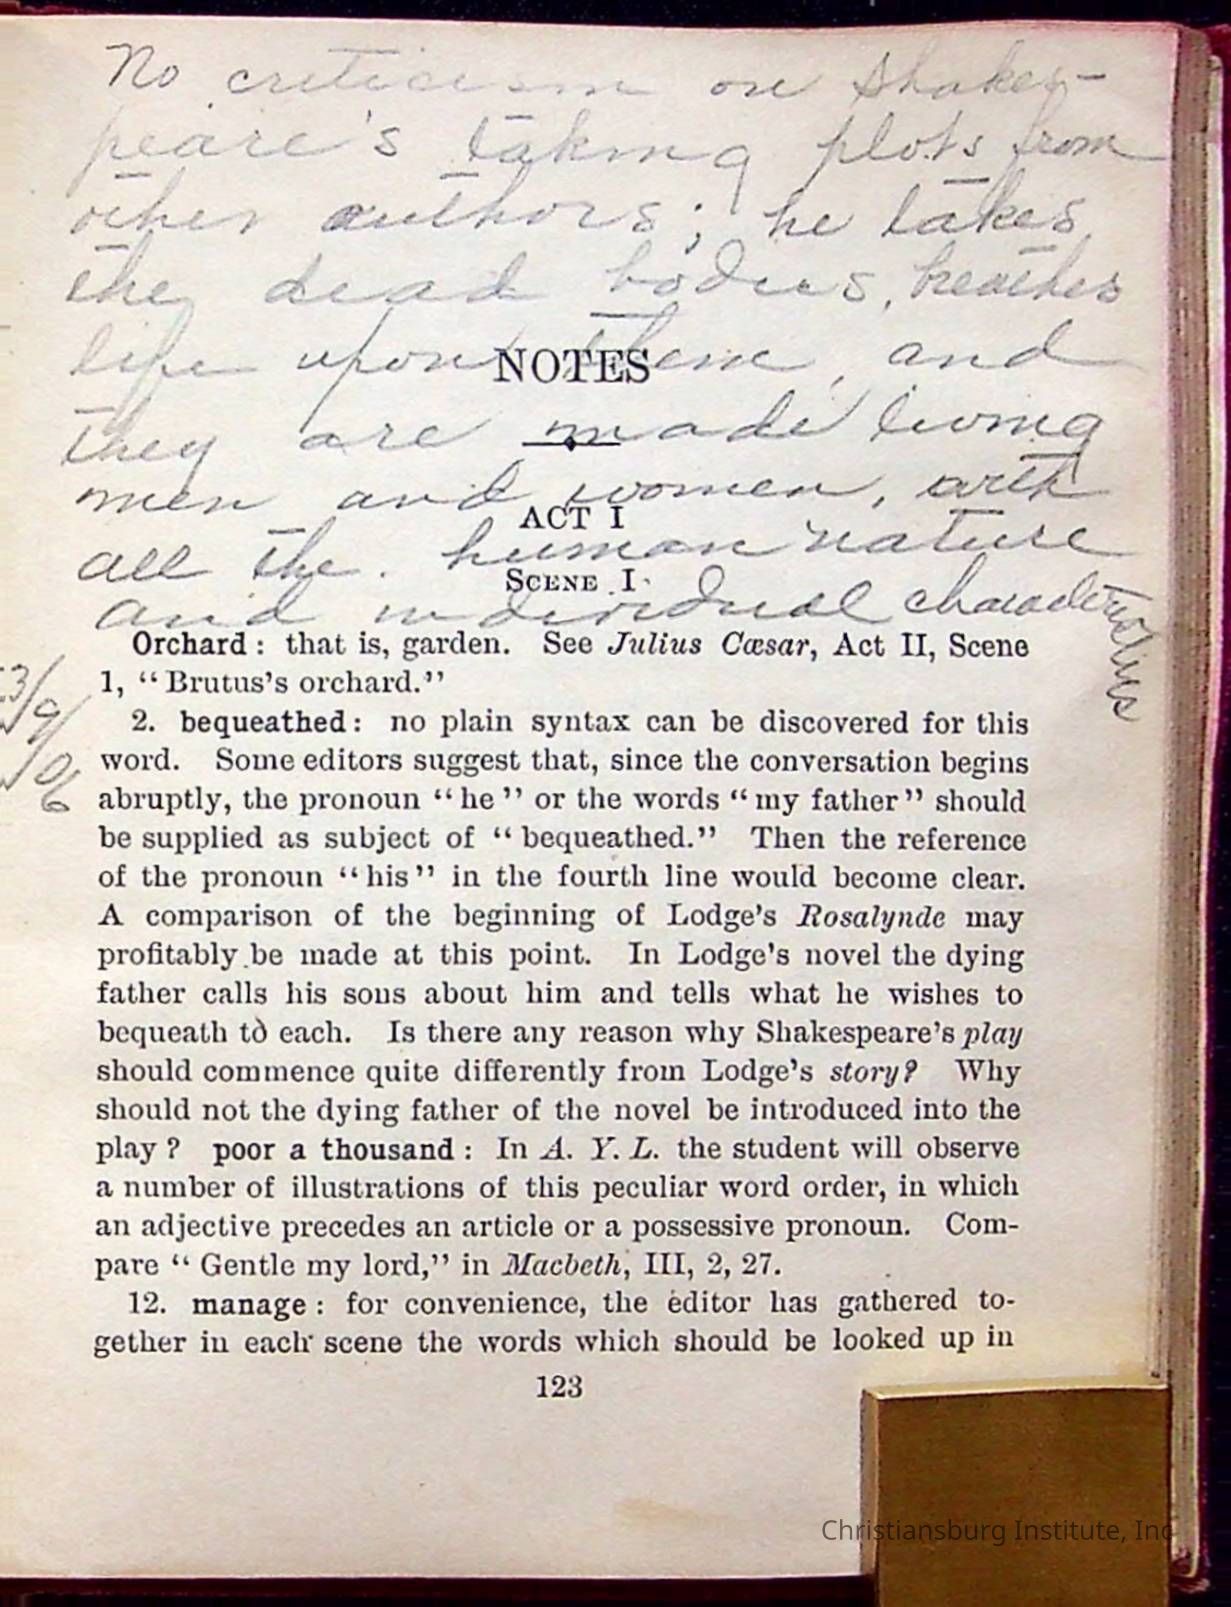 No criticism on Shakes-
peare's taking plots from
other authors; he takes
the dead bodies, breathes
life upon them, and
they are made living
men and women, with
all the human nature
and individual characteristics
3/9/06
NOTES
ACT I
SCENE I
Orchard: that is, garden. See Julius Cæsar, Act II, Scene
1, "Brutus's orchard."
2. bequeathed: no plain syntax can be discovered for this
word. Some editors suggest that, since the conversation begins
abruptly, the pronoun "he" or the words "my father" should
be supplied as subject of "bequeathed." Then the reference
of the pronoun "his" in the fourth line would become clear.
A comparison of the beginning of Lodge's Rosalynde may
profitably be made at this point. In Lodge's novel the dying
father calls his sons about him and tells what he wishes to
bequeath to each. Is there any reason why Shakespeare's play
should commence quite differently from Lodge's story? Why
should not the dying father of the novel be introduced into the
play? poor a thousand: In A. Y. L. the student will observe
a number of illustrations of this peculiar word order, in which
an adjective precedes an article or a possessive pronoun. Com-
pare "Gentle my lord," in Macbeth, III, 2, 27.
12. manage: for convenience, the editor has gathered to-
gether in each scene the words which should be looked up in
123
Christiansburg Institute, Inc